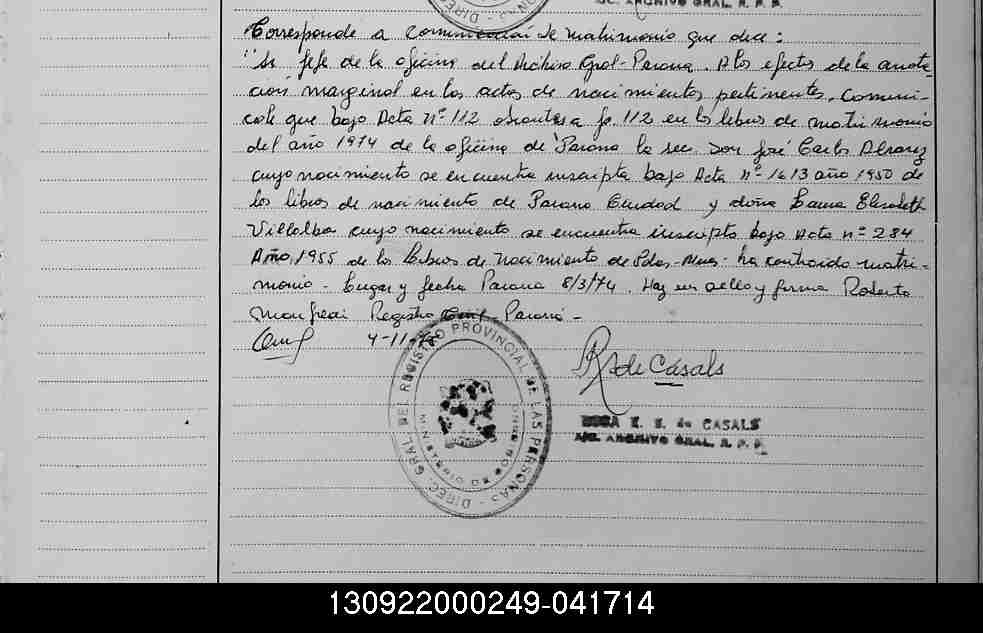 DIREC. PERSONAS
ARCHIVO GRAL. R. P. P.
Corresponde a comunicación de matrimonio que dice:
"Sr. Jefe de la oficina del Archivo Gral-Parana. A los efectos de la anota-
ción marginal en los actas de nacimientos pertinentes, comuni-
cole que bajo Acta Nº 112 obrante a fs. 112 en los libros de matrimonio
del año 1974 de la oficina de Parana 1a sec. Don José Carlos Alvarez
cuyo nacimiento se encuentra inscripto bajo Acta nº 1613 año 1950 de
los libros de nacimiento de Parana Ciudad y doña Laura Elisabeth
Villalba cuyo nacimiento se encuentra inscripto bajo Acta nº 284
Año 1955 de los Libros de Nacimiento de ha contraido matri-
monio - Lugar y fecha Parana 8/3/74. Hay un sello y firma Roberto
Manfredi Registro Civil Parana -
4-11-
R de Casals
DIREC. GRAL. DEL REGISTRO PROVINCIAL DE LAS PERSONAS
MINISTERIO DE GOBIERNO
ROSA E. S. de CASALS
ARCHIVO GRAL. R. P. P.
130922000249-041714